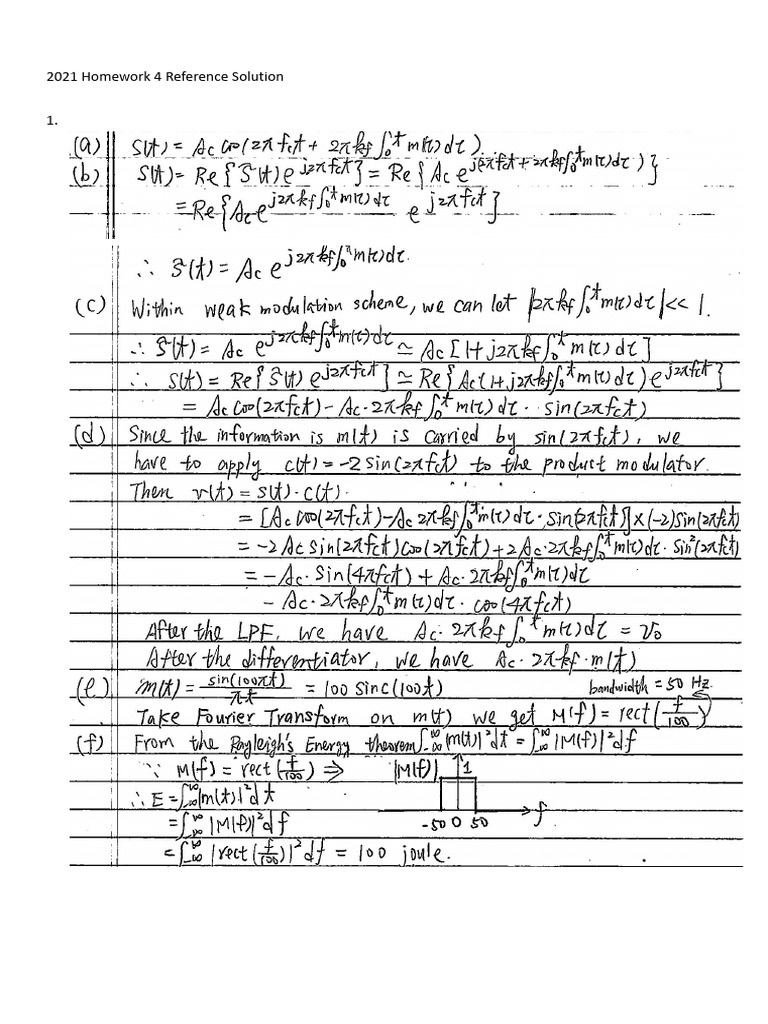 2021 Homework 4 Reference Solution
1.
(a) s(t) = Ac cos(2πfct + 2πkf∫₀ᵗ m(τ)dτ).
(b) s(t) = Re{s̃(t) e^{j2πfct}} = Re{Ac e^{j(2πfct + 2πkf∫₀ᵗm(τ)dτ)}}
= Re{Ac e^{j2πkf∫₀ᵗm(τ)dτ} e^{j2πfct}}
∴ s̃(t) = Ac e^{j2πkf∫₀ᵗm(τ)dτ}.
(c) Within weak modulation scheme, we can let |2πkf∫₀ᵗm(τ)dτ| << 1.
∴ s̃(t) = Ac e^{j2πkf∫₀ᵗm(τ)dτ} ≃ Ac[1+j2πkf∫₀ᵗm(τ)dτ]
∴ s(t) = Re{s̃(t) e^{j2πfct}} ≃ Re{Ac(1+j2πkf∫₀ᵗm(τ)dτ) e^{j2πfct}}
= Ac cos(2πfct) - Ac·2πkf∫₀ᵗm(τ)dτ · sin(2πfct)
(d) Since the information is m(t) is carried by sin(2πfct), we
have to apply c(t) = -2 sin(2πfct) to the product modulator.
Then v(t) = s(t)·c(t).
= [Ac cos(2πfct) - Ac 2πkf∫₀ᵗm(τ)dτ · sin(2πfct)] × (-2) sin(2πfct)
= -2Ac sin(2πfct) cos(2πfct) + 2Ac·2πkf∫₀ᵗm(τ)dτ · sin²(2πfct)
= -Ac· sin(4πfct) + Ac·2πkf∫₀ᵗm(τ)dτ
- Ac·2πkf∫₀ᵗm(τ)dτ · cos(4πfct)
After the LPF, we have Ac·2πkf∫₀ᵗm(τ)dτ = v₀
After the differentiator, we have Ac·2πkf·m(t)
(e) m(t) = sin(100πt)/πt = 100 sinc(100t) bandwidth = 50 Hz.
Take Fourier Transform on m(t) we get M(f) = rect(f/100)
(f) From the Rayleigh's Energy theorem ∫_{-∞}^{∞}|m(t)|²dt = ∫_{-∞}^{∞}|M(f)|²df
∵ M(f) = rect(f/100) ⇒ |M(f)| 1
∴ E = ∫_{-∞}^{∞}|m(t)|²dt
-50 0 50 f
= ∫_{-∞}^{∞}|M(f)|²df
= ∫_{-∞}^{∞}|rect(f/100)|²df = 100 joule.